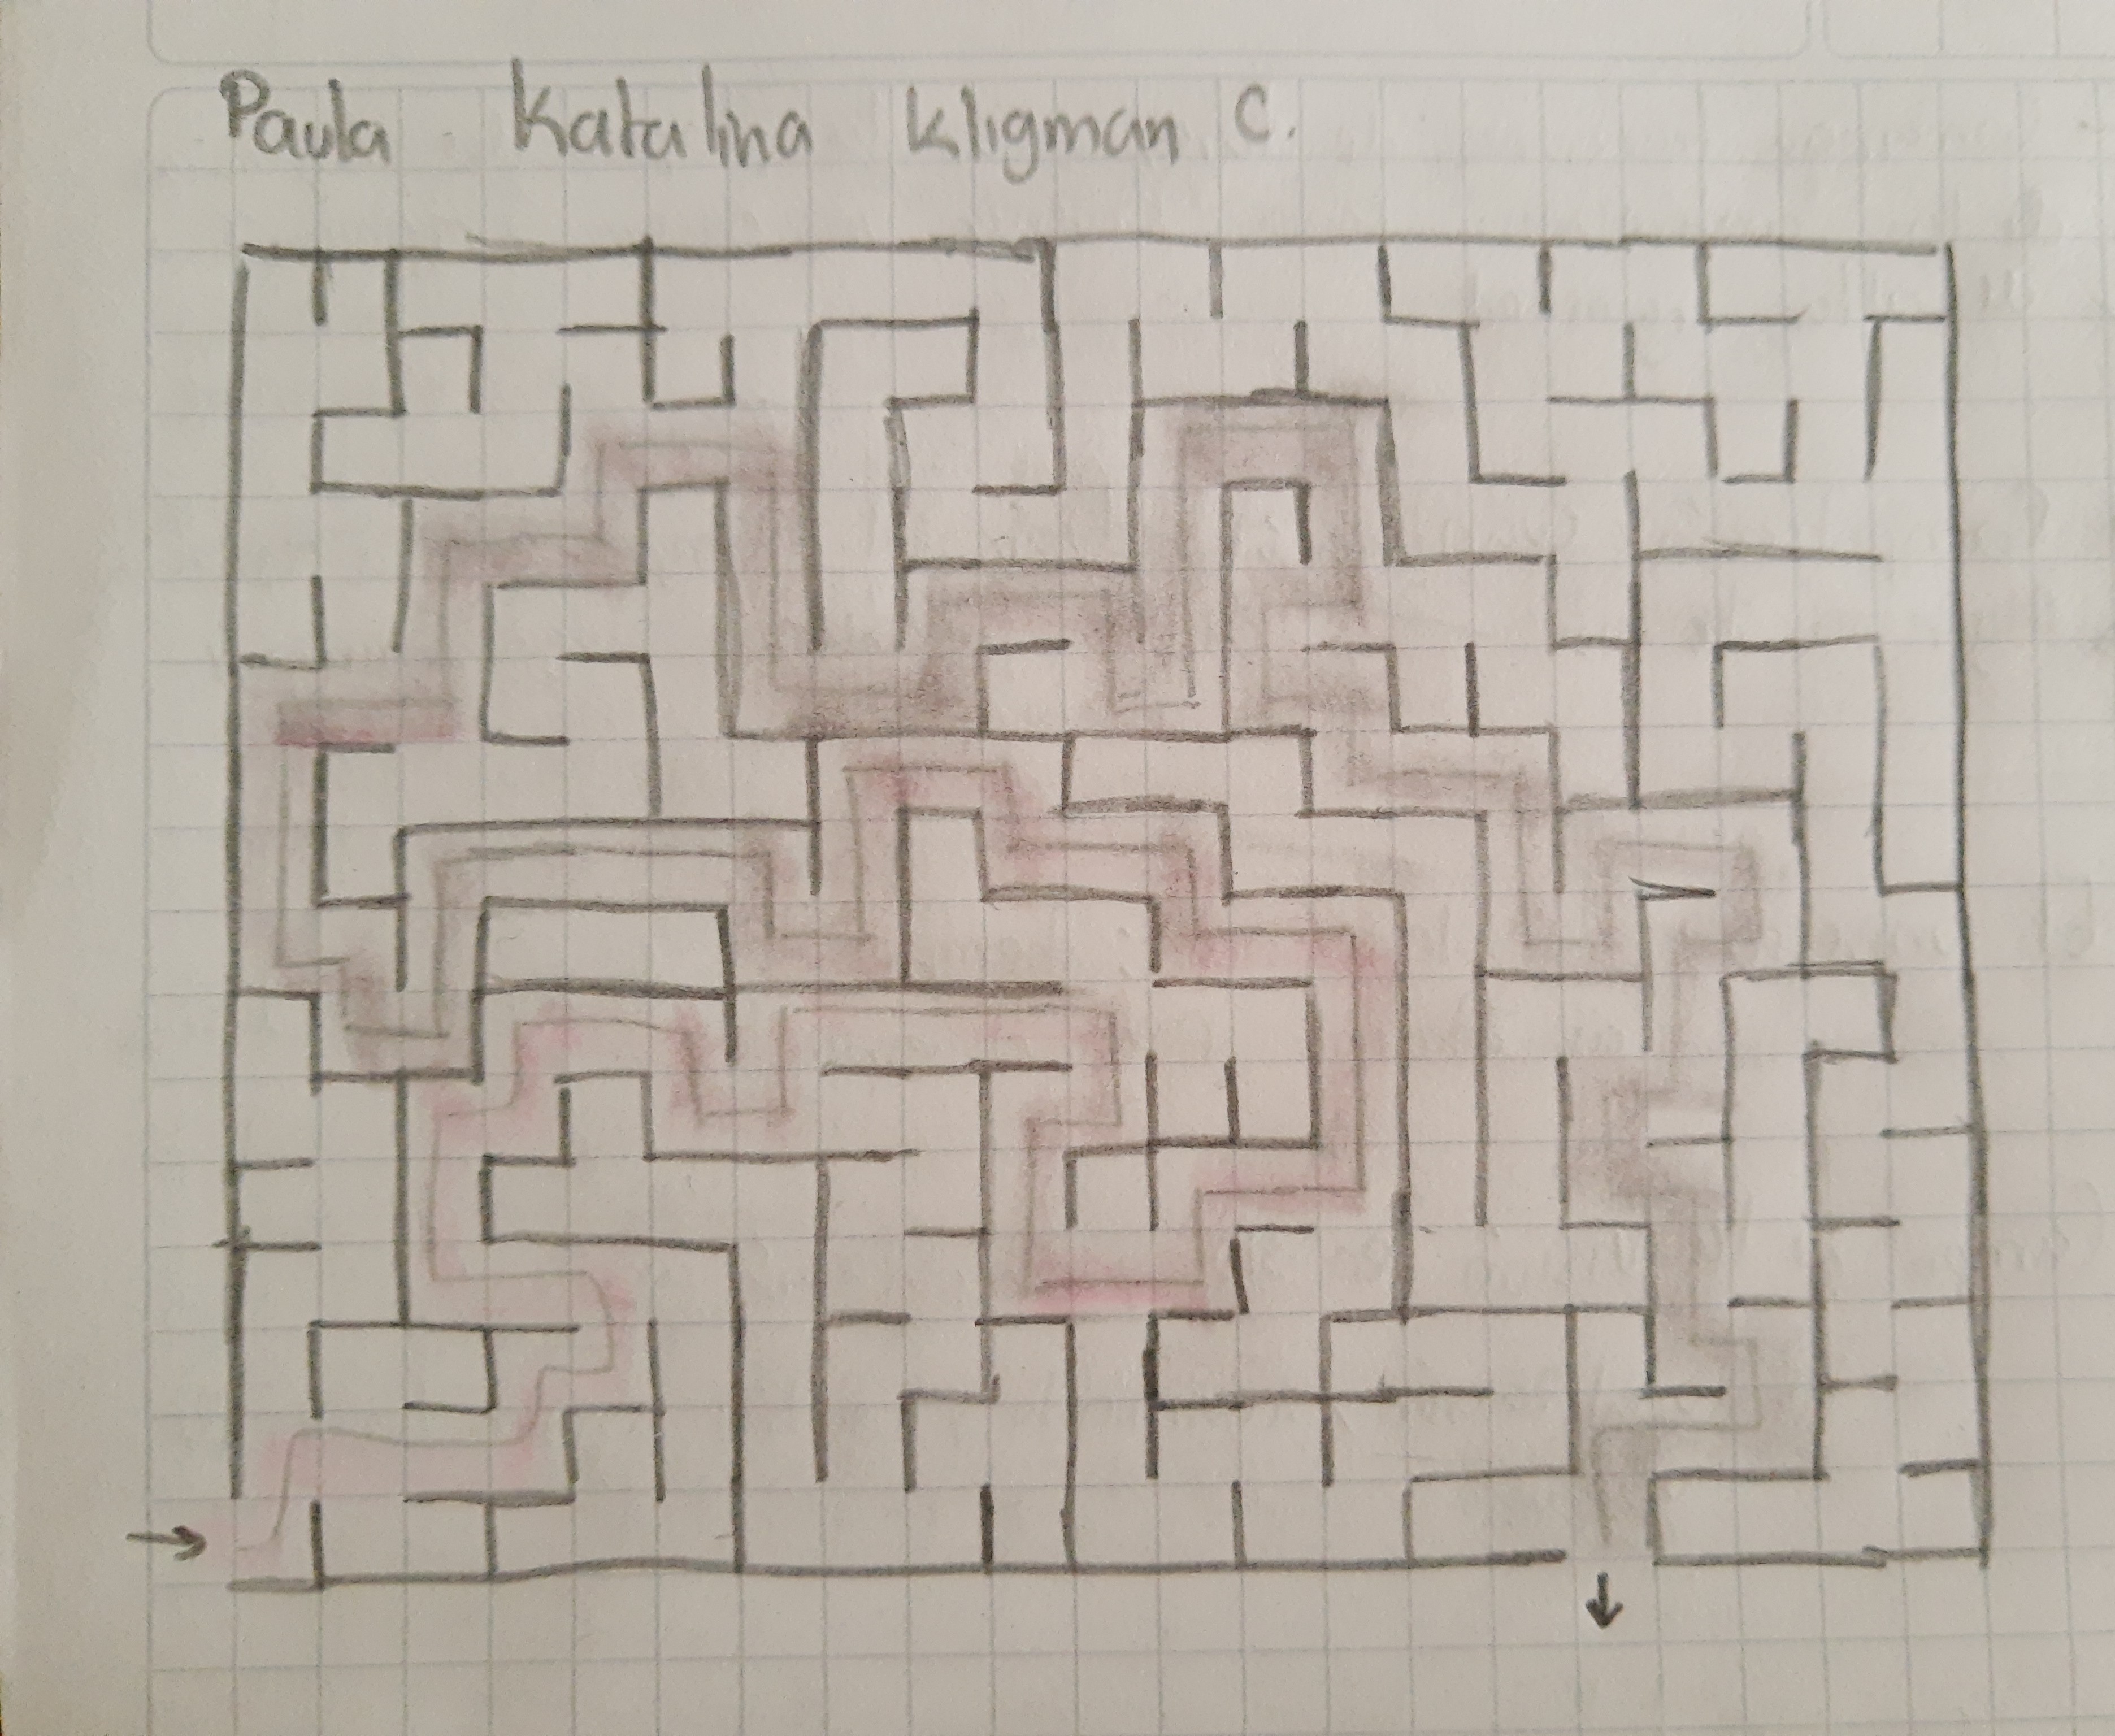 Paula Katalina Kligman C.